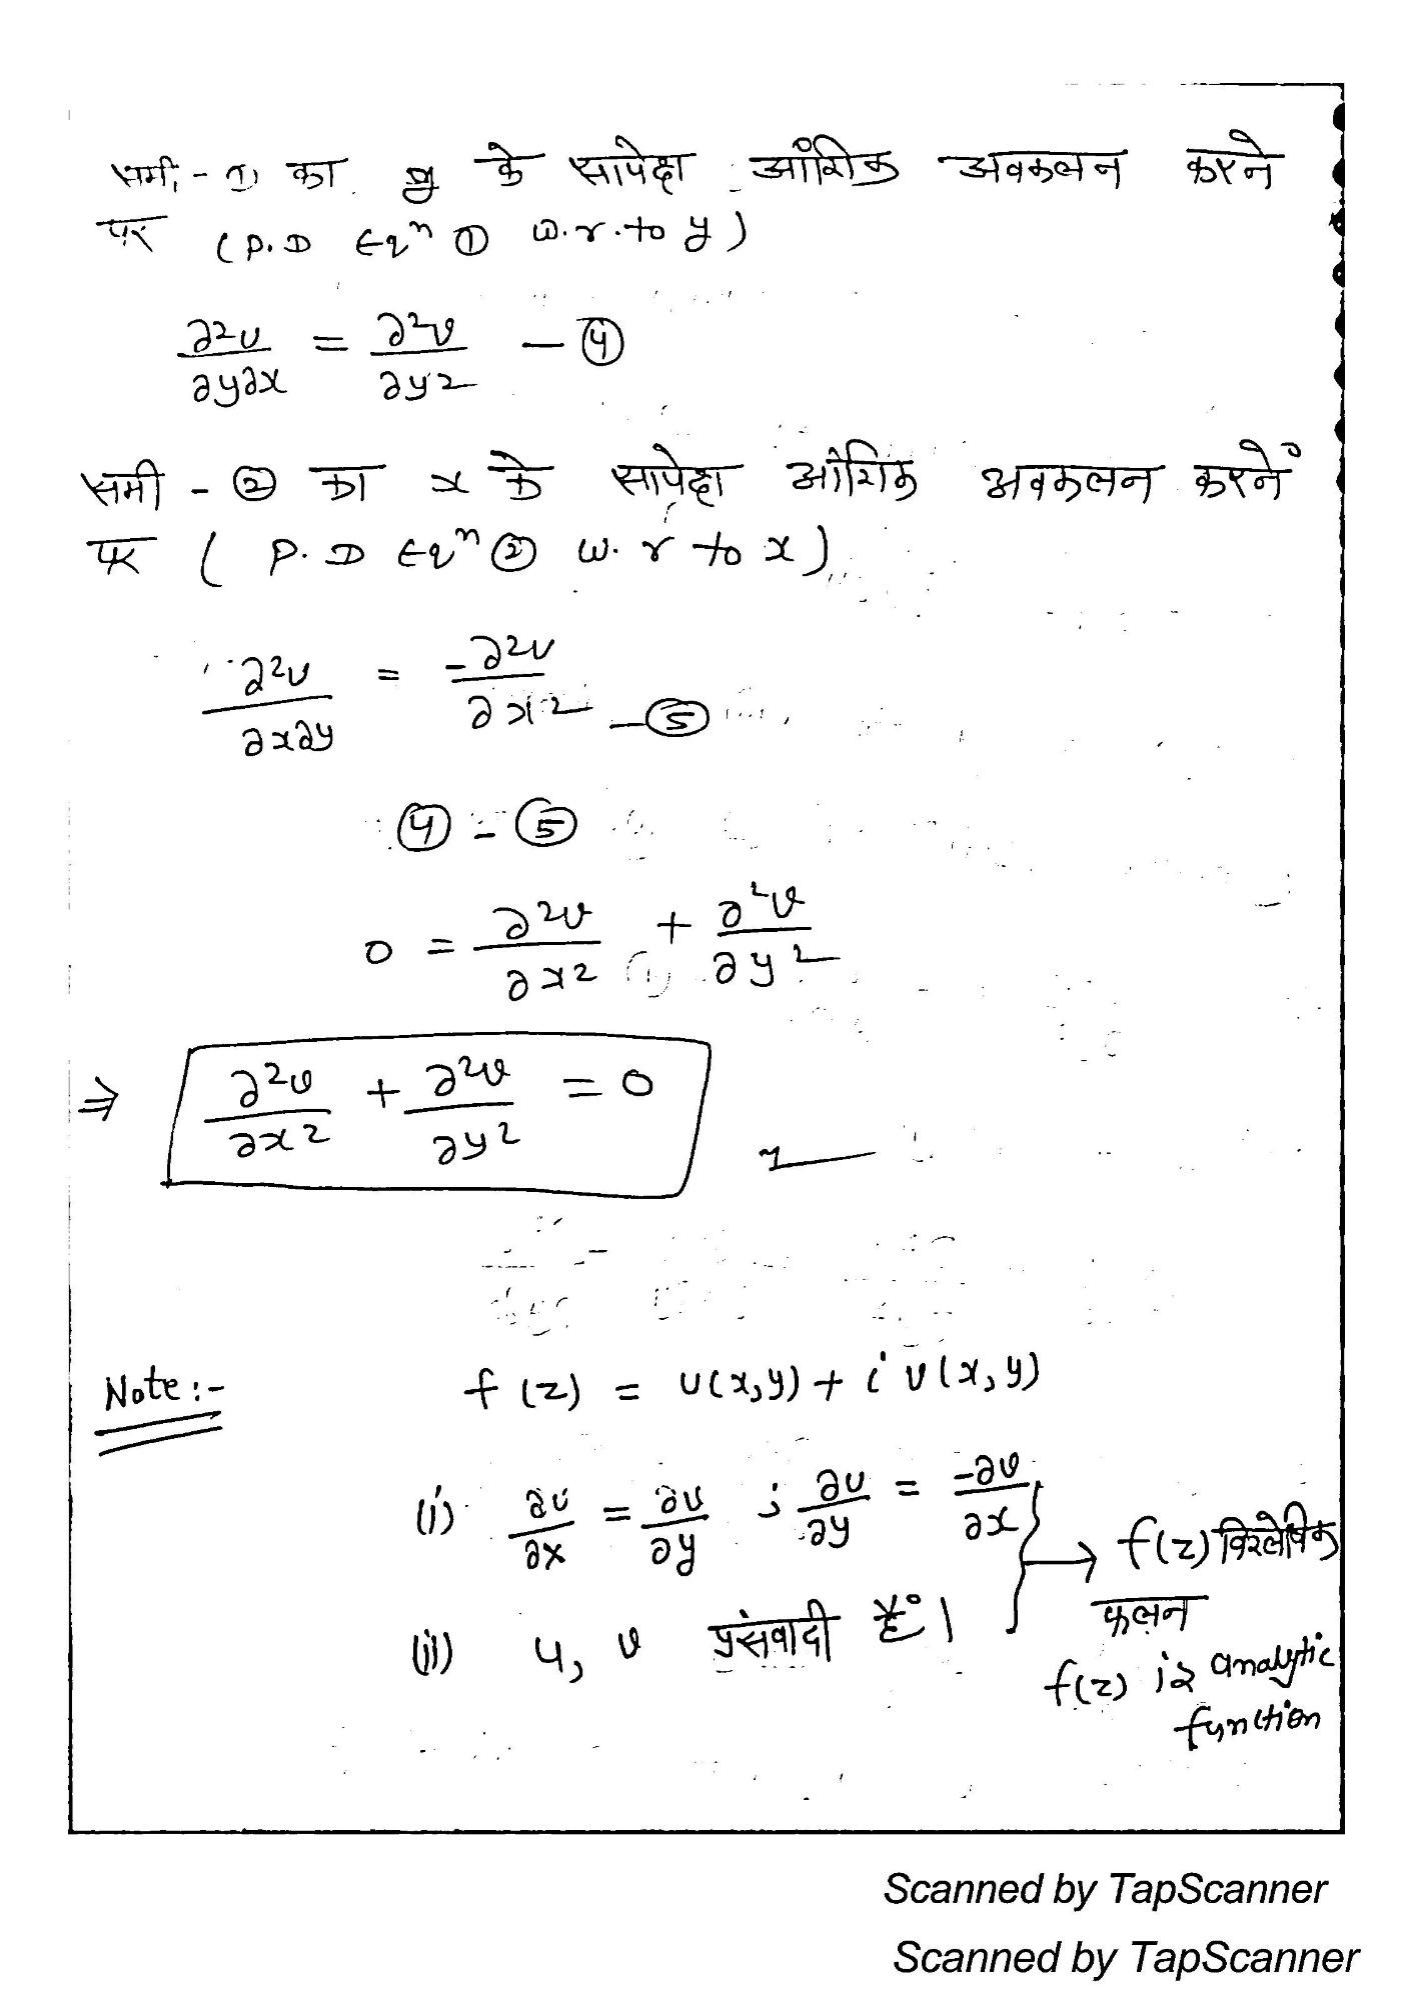 समी, - ① का y के सापेक्ष आंशिक अवकलन करने
पर (P.D Eqⁿ ① w.r.to y)
∂²u/∂y∂x = ∂²v/∂y² — ④
समी - ② का x के सापेक्ष आंशिक अवकलन करनें
पर ( P.D Eqⁿ ② w.r to x)
∂²u/∂x∂y = -∂²v/∂x² — ⑤
④ - ⑤
0 = ∂²v/∂x² + ∂²v/∂y²
⇒ ∂²v/∂x² + ∂²v/∂y² = 0
Note :- f(z) = u(x,y) + i v(x,y)
(i) ∂u/∂x = ∂v/∂y ; ∂u/∂y = -∂v/∂x
→ f(z) विश्लेषिक
फलन
(ii) u, v प्रसंवादी हैं।
f(z) is analytic
function
Scanned by TapScanner
Scanned by TapScanner